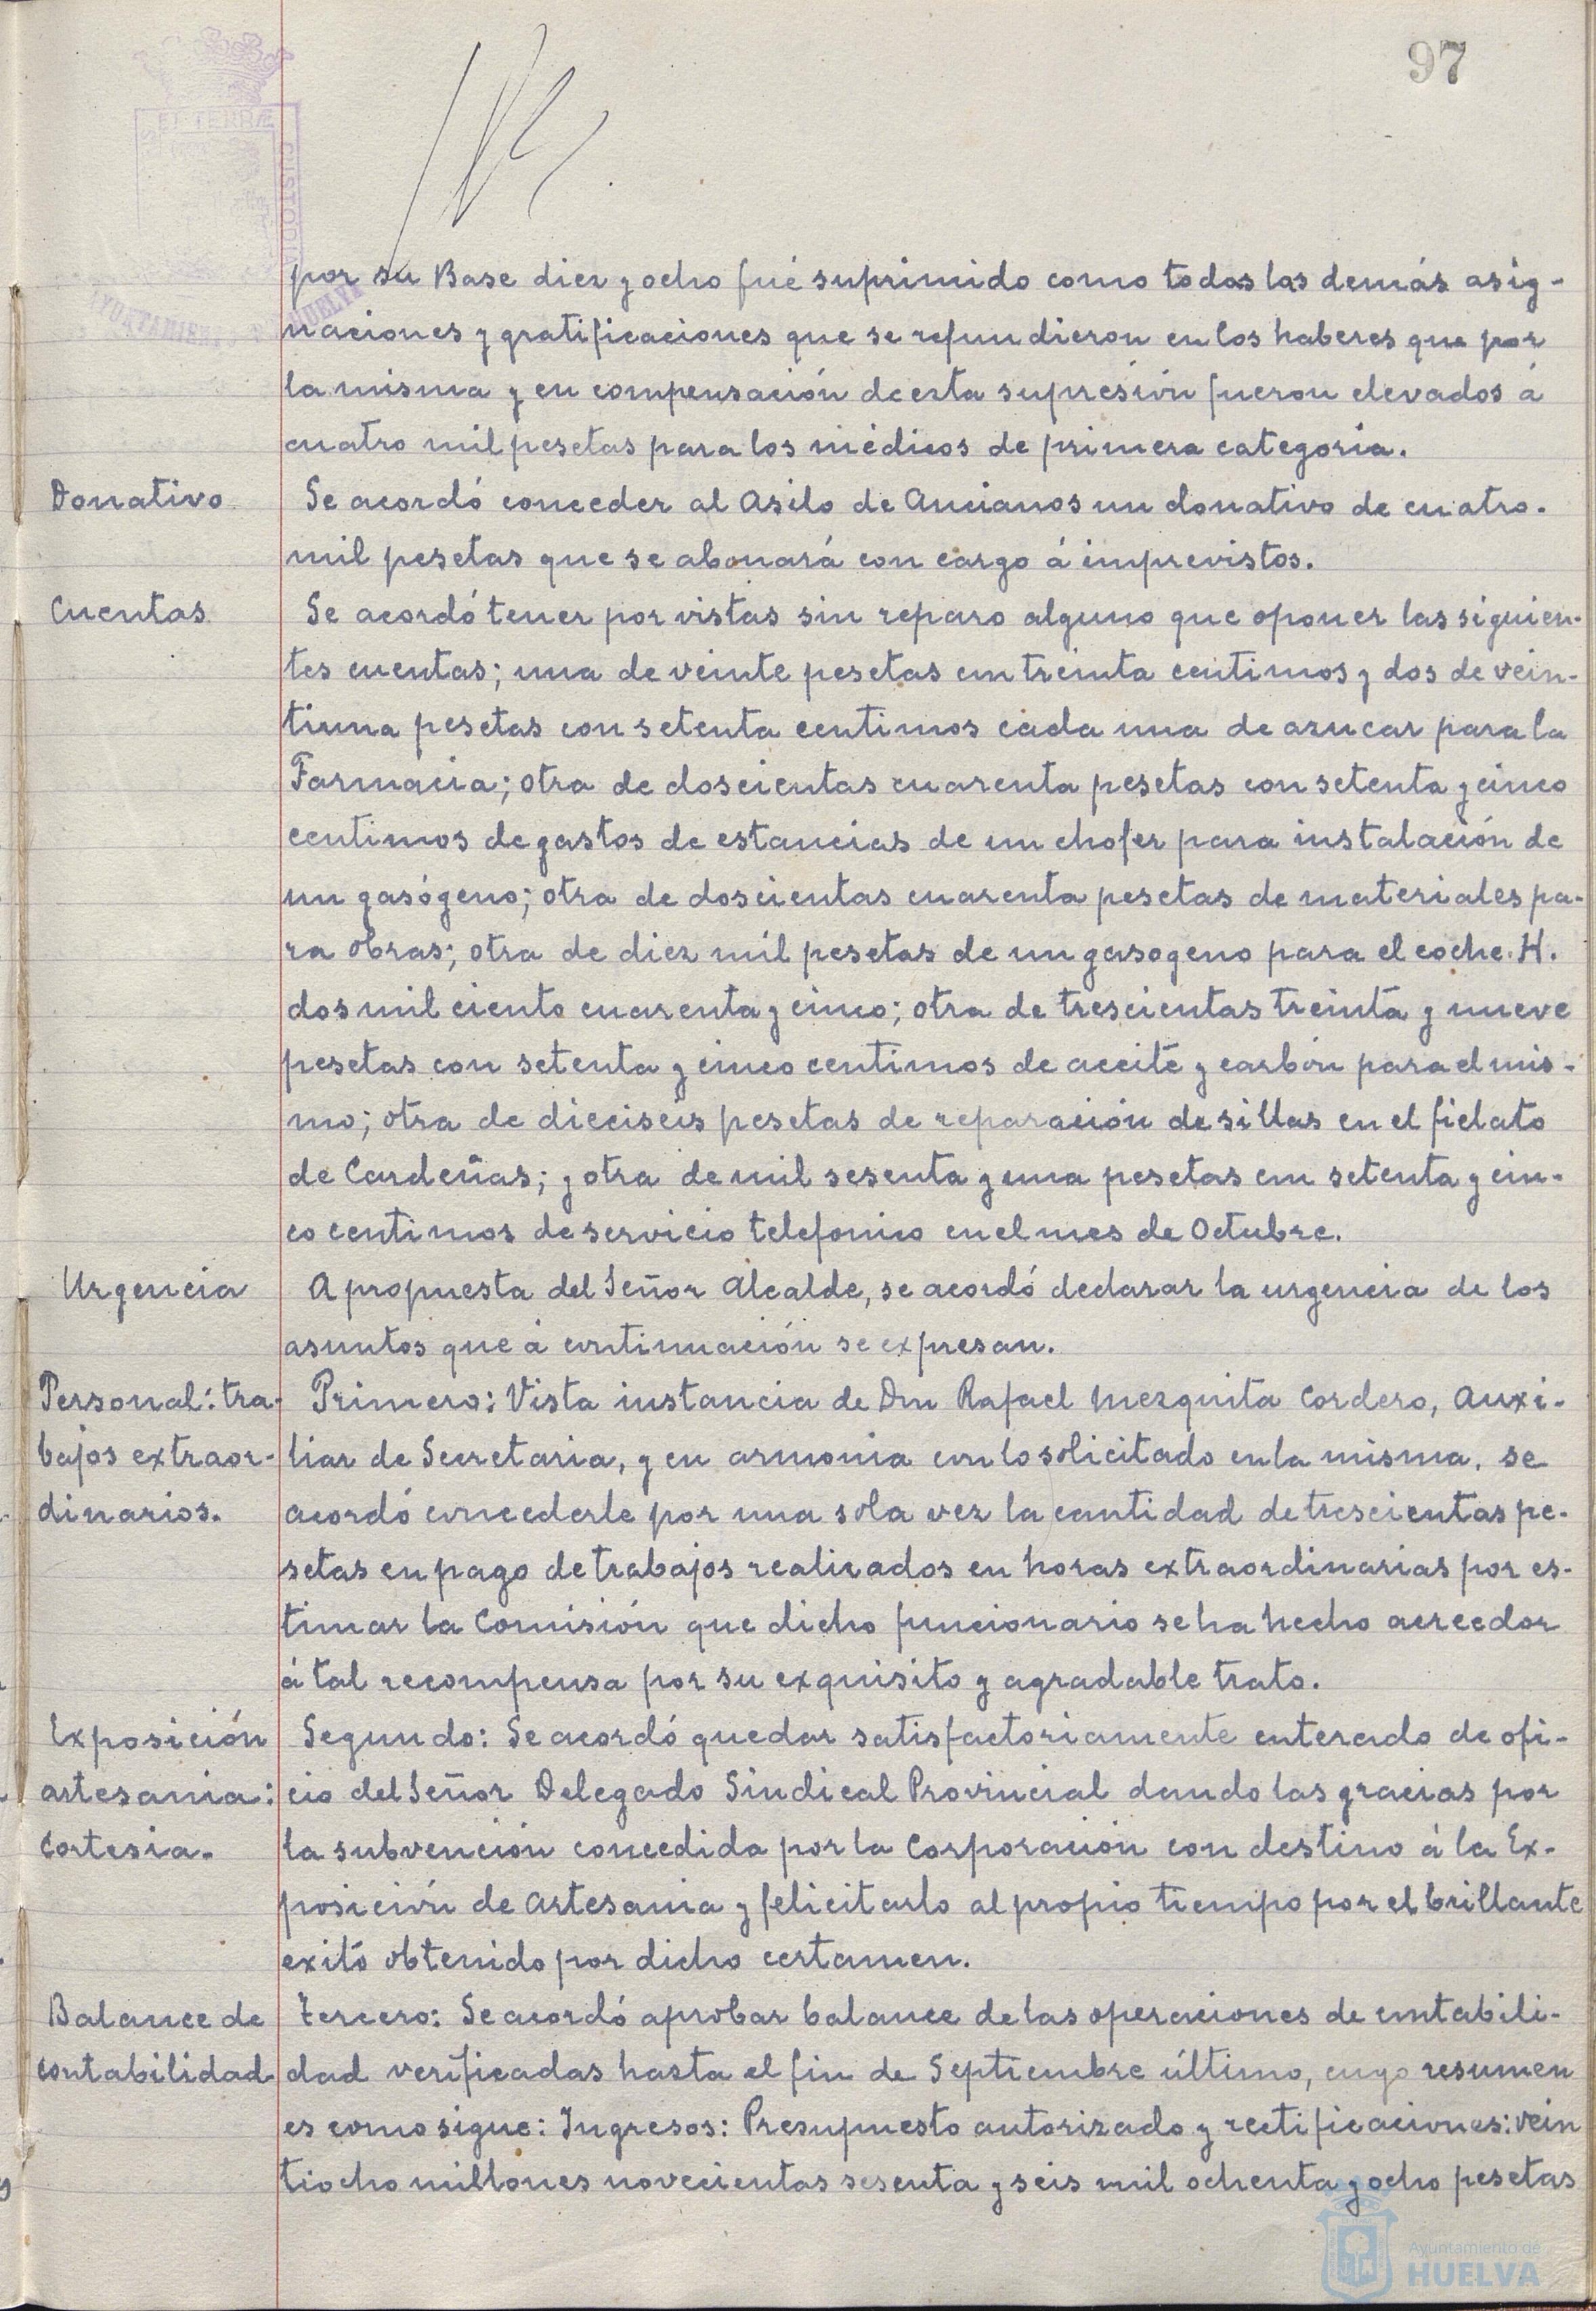 97
ET TERRÆ
CUSTODIA
AYUNTAMIENTO HUELVA
por su Base diez y ocho fué suprimido como todas las demás asig-
naciones y gratificaciones que se refundieron en los haberes que por
la misma y en compensación de esta supresión fueron elevados á
cuatro mil pesetas para los médicos de primera categoria.
Donativo
Se acordó conceder al Asilo de Ancianos un donativo de cuatro-
mil pesetas que se abonará con cargo á imprevistos.
Cuentas
Se acordó tener por vistas sin reparo alguno que oponer las siguien-
tes cuentas; una de veinte pesetas con treinta centimos y dos de vein-
tiuna pesetas con setenta centimos cada una de azucar para la
Farmacia; otra de doscientas cuarenta pesetas con setenta y cinco
centimos de gastos de estancias de un chofer para instalación de
un gasógeno; otra de doscientas cuarenta pesetas de materiales pa-
ra obras; otra de diez mil pesetas de un gasogeno para el coche H.
dos mil ciento cuarenta y cinco; otra de trescientas treinta y nueve
pesetas con setenta y cinco centimos de aceite y carbón para el mis-
mo; otra de dieciseis pesetas de reparación de sillas en el fielato
de Cardeñas; y otra de mil sesenta y una pesetas con setenta y cin-
co centimos de servicio telefonico en el mes de Octubre.
Urgencia
A propuesta del Señor Alcalde, se acordó declarar la urgencia de los
asuntos que á continuación se expresan.
Personal: tra-
bajos extraor-
dinarios.
Primero: Vista instancia de Don Rafael Mezquita Cordero, Auxi-
liar de Secretaria, y en armonia con lo solicitado en la misma, se
acordó concederle por una sola vez la cantidad de trescientas pe-
setas en pago de trabajos realizados en horas extraordinarias por es-
timar la Comisión que dicho funcionario se ha hecho acreedor
á tal recompensa por su exquisito y agradable trato.
Exposición
artesania:
Cortesia.
Segundo: Se acordó quedar satisfactoriamente enterado de ofi-
cio del Señor Delegado Sindical Provincial dando las gracias por
la subvención concedida por la Corporación con destino á la Ex-
posición de Artesania y felicitarlo al propio tiempo por el brillante
exitó obtenido por dicho certamen.
Balance de
contabilidad
Tercero: Se acordó aprobar balance de las operaciones de contabili-
dad verificadas hasta el fin de Septiembre último, cuyo resumen
es como sigue: Ingresos: Presupuesto autorizado y rectificaciones: vein
tiocho millones novecientas sesenta y seis mil ochenta y ocho pesetas
Ayuntamiento de
HUELVA